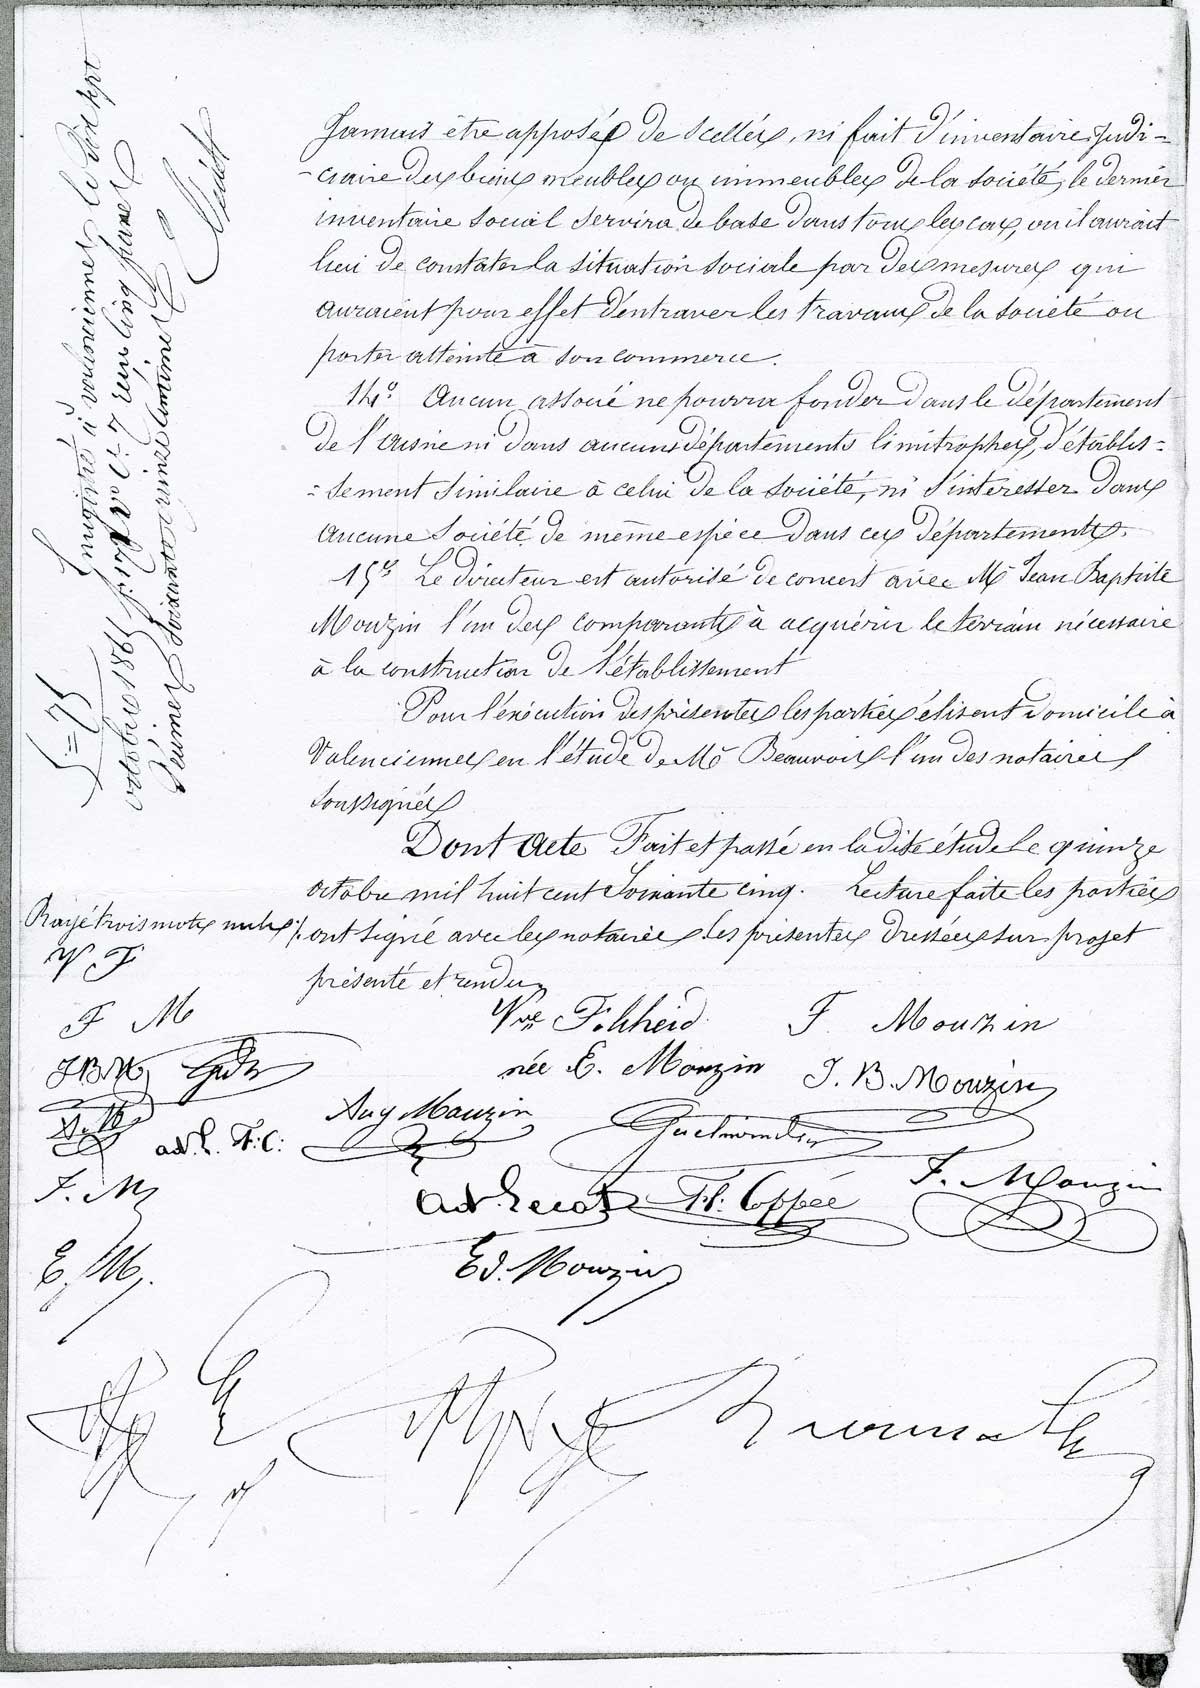 Jamais être apposés de scellés, ni fait d'inventaire judi=
=ciaire des biens meubles ou immeubles de la société, le dernier
inventaire social servira de base dans tous les cas, où il aurait
lieu de constater la situation sociale par des mesures qui
auraient pour effet d'entraver les travaux de la société ou
porter atteinte à son commerce.
14° Aucun associé ne pourra fonder dans le département
de l'aisne ni dans aucuns départements limitrophes, d'établis=
=sement similaire à celui de la société, ni s'intéresser dans
aucune société de même espèce dans ces départements.
15° Le directeur est autorisé de concert avec Mr Jean Baptiste
Mouzin l'un des comparants à acquérir le terrain nécessaire
à la construction de l'établissement
Pour l'exécution des présentes les parties élisent domicile à
Valenciennes en l'étude de Me Beauvois l'un des notaires
soussignés
Dont acte Fait et passé en la dite étude Le quinze
octobre mil huit cent soixante cinq. Lecture faite les parties
ont signé avec les notaires les présentes dressées sur projet
présenté et rendu
Enregistré à valenciennes le dix sept
octobre 1865 f. 179 vo c. 7 reçu cinq francs
décimes soixante quinze centimes
5=75
Rayé trois mots nuls
V F
F M
J B M
A. M
ad. L. Fl: C:
F. M
E. M.
Vve Fohheid F. Mouzin
née E. Mouzin J. B. Mouzin
Aug Mouzin
Ad. Lecat Fl: Coppée F. Mouzin
Ed. Mouzin